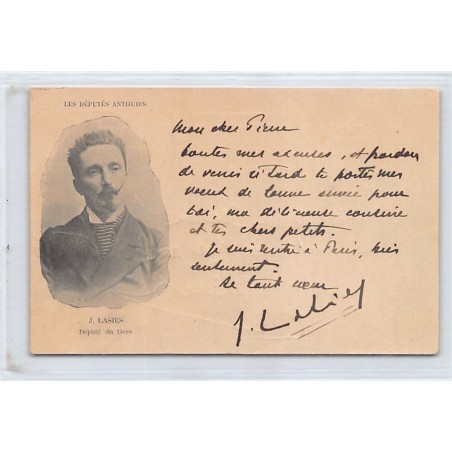 LES DÉPUTÉS ANTIJUIFS
Mon cher Pierre
toutes mes excuses, et pardon
de venir si tard te porter mes
voeux de bonne année pour
toi, ma délicieuse cousine
et tes chers petits.
Je suis rentré à Paris, hier
seulement.
De tout coeur
J. Lasies
J. LASIES
Député du Gers